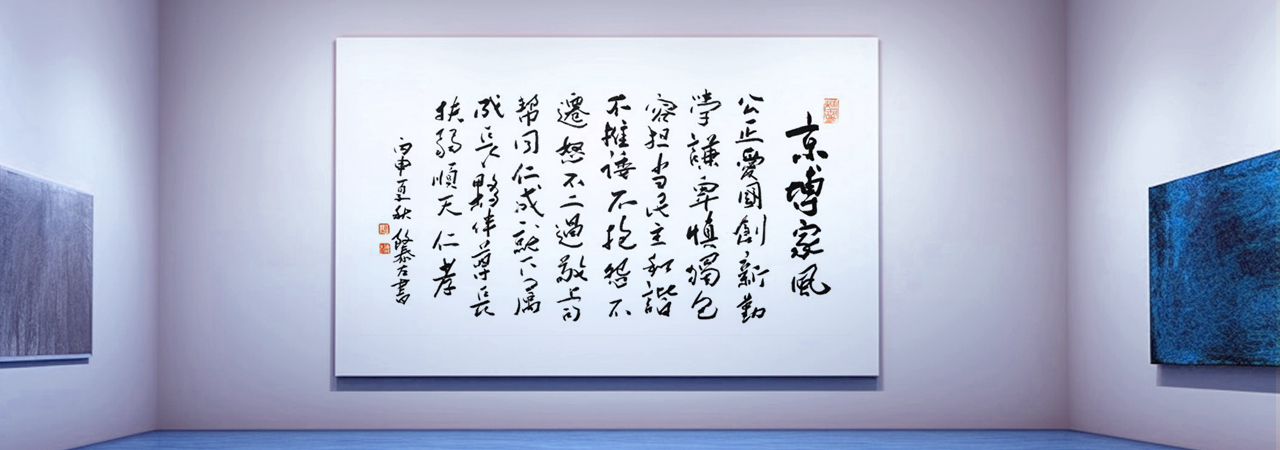 京博家風
公正愛國創新勤
學謙卑慎獨包
容担当民主和諧
不推諉不抱怨不
遷怒不二過敬上司
幫同仁成就下属
成長夥伴尊長
扶弱順天仁孝
丙申夏秋 書